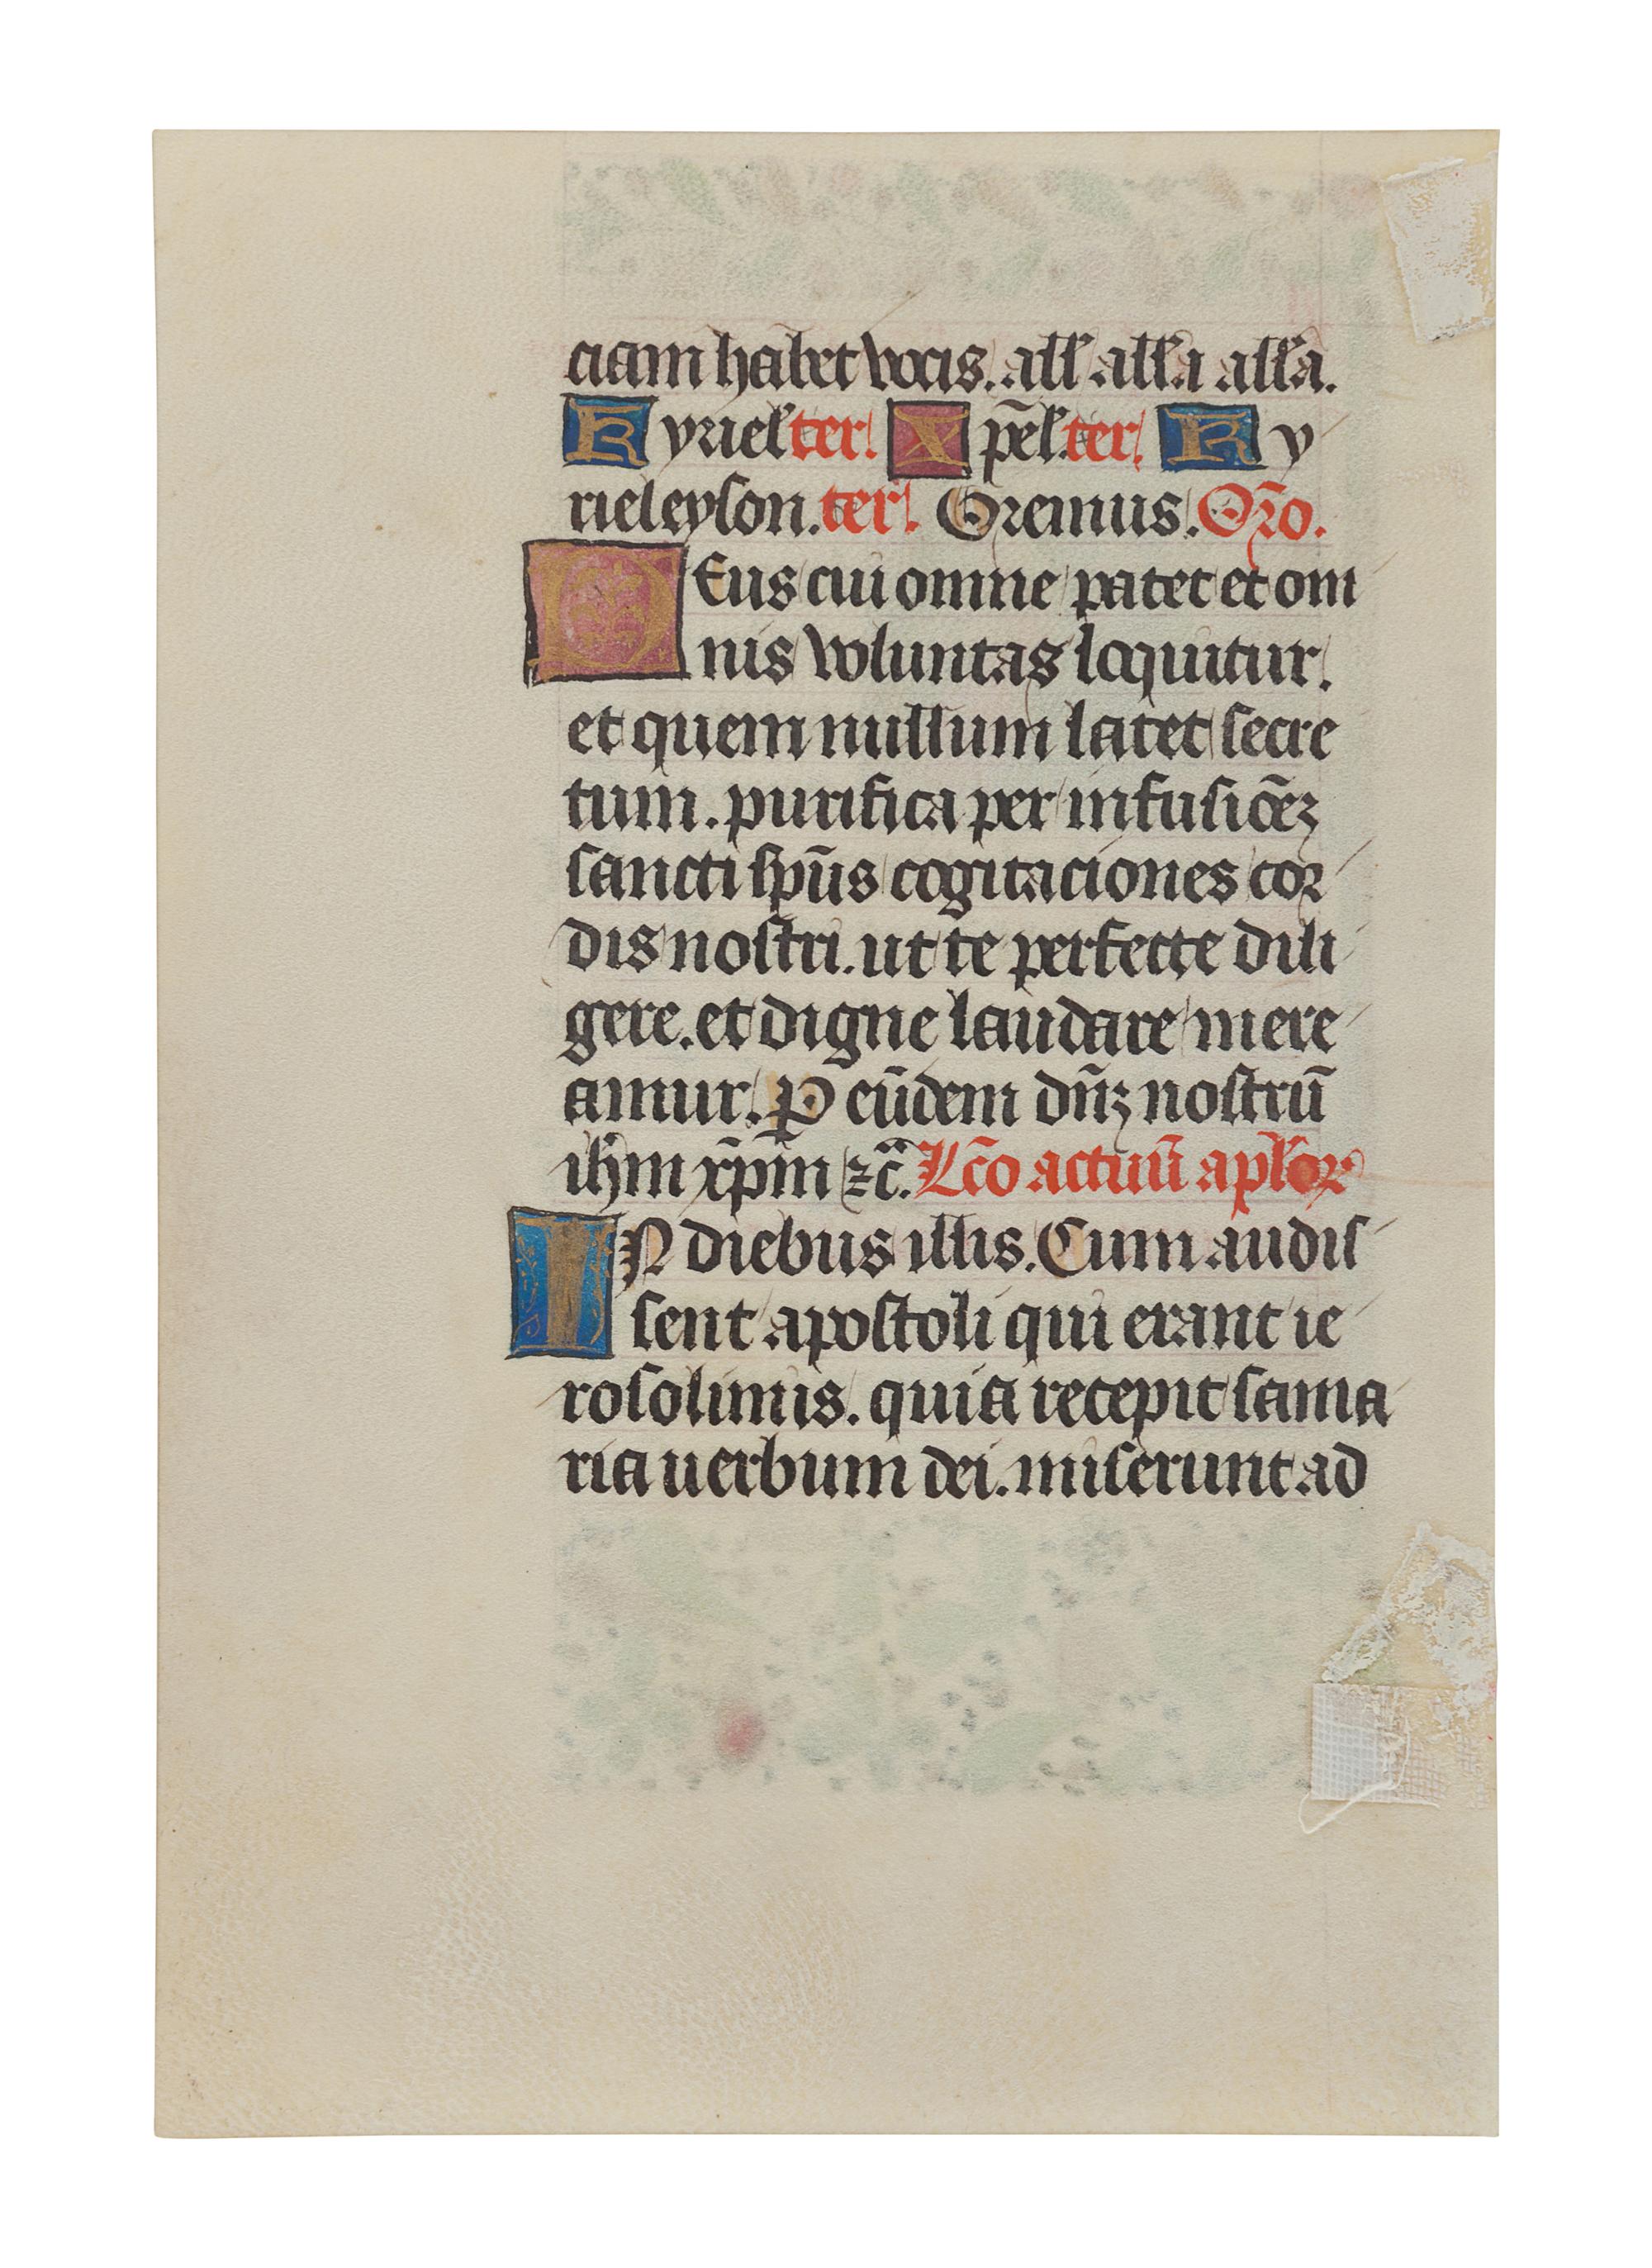 ciam habet vocis. all' all'a all'a.
Kyriel' ter. Xp̄el' ter. Ky
rieleyson. ter. Oremus. Or̄o.
DEus cui omne patet et om
nis voluntas loquitur.
et quem nullum latet secre
tum. purifica per infusiōeꝫ
sancti sp̄us cogitaciones cor
dis nostri. ut te perfecte dili
gere. et digne laudare mere
amur. P eūdem dn̄ꝫ nostrū
ihm xp̄m ⁊c̄. Lc̄o actuū apl'oꝝ
IN diebus illis. Cum audis
sent apostoli qui erant ie
rosolimis. quia recepit sama
ria uerbum dei. miserunt ad